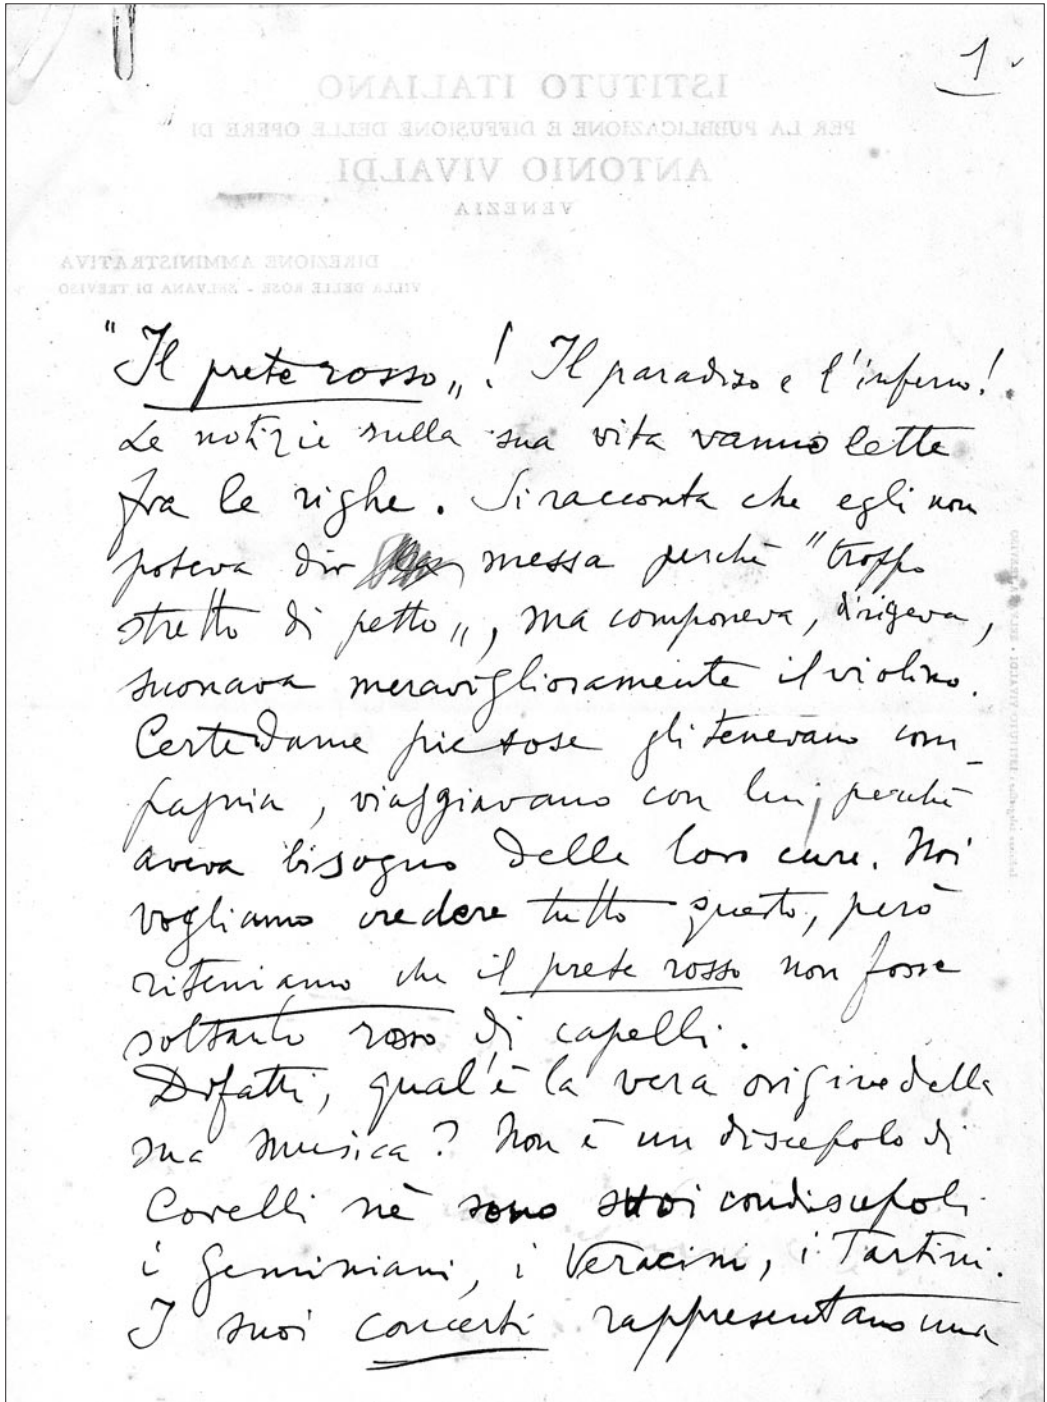 1
ISTITUTO ITALIANO
PER LA PUBBLICAZIONE E DIFFUSIONE DELLE OPERE DI
ANTONIO VIVALDI
VENEZIA
DIREZIONE AMMINISTRATIVA
VILLA DELLE ROSE - SELVANA DI TREVISO
"Il prete rosso„! Il paradiso e l'inferno!
Le notizie sulla sua vita vanno lette
fra le righe. Si racconta che egli non
poteva dir messa perchè "troppo
stretto di petto„, ma componeva, dirigeva,
suonava meravigliosamente il violino.
Certe dame pietose gli tenevano com-
pagnia, viaggiavano con lui, perchè
aveva bisogno delle loro cure. Noi
vogliamo credere tutto questo, però
riteniamo che il prete rosso non fosse
soltanto rosso di capelli.
Difatti, qual'è la vera origine della
sua musica? Non è un discepolo di
Corelli nè sono suoi condiscepoli
i Geminiani, i Veracini, i Tartini.
I suoi concerti rappresentano una